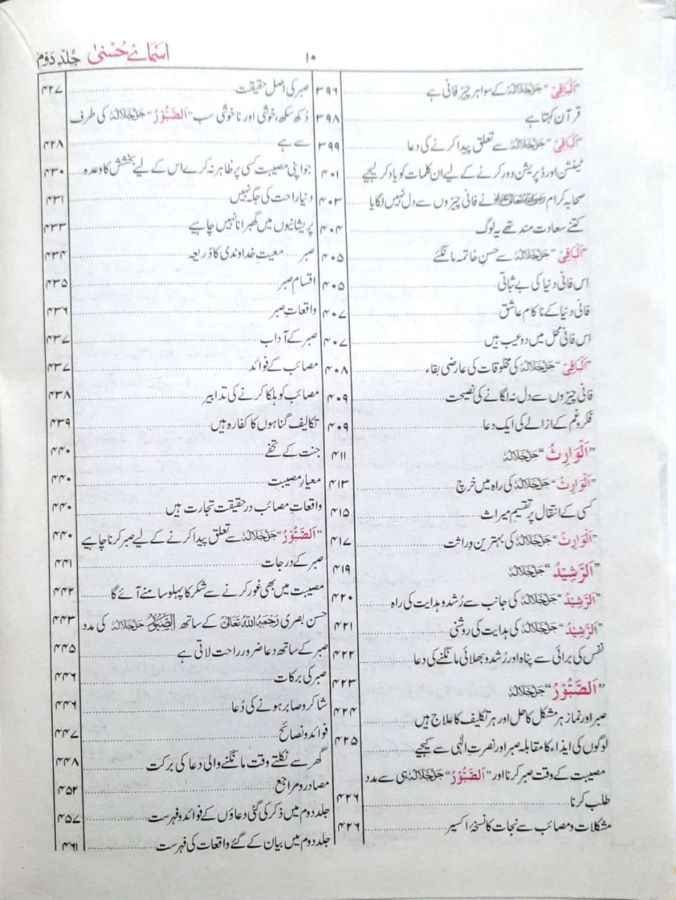 اسمائے حُسنیٰ جلد دوم
۱۰
”اَلْبَاقِیْ“ جَلَّ جَلَالُہٗ کے سوا ہر چیز فانی ہے ۳۹۶
قرآن کہتا ہے ۳۹۸
”اَلْبَاقِیْ“ جَلَّ جَلَالُہٗ سے تعلق پیدا کرنے کی دعا ۳۹۹
ٹینشن اور ڈپریشن دور کرنے کے لیے ان کلمات کو یاد کر لیجیے ۴۰۱
صحابہ کرام رَضِیَ اللہُ تَعَالٰی عَنْہُمْ نے فانی چیزوں سے دل نہیں لگایا ۴۰۳
کتنے سعادت مند تھے یہ لوگ ۴۰۴
”اَلْبَاقِیْ“ جَلَّ جَلَالُہٗ سے حسنِ خاتمہ مانگئے ۴۰۵
اس فانی دنیا کی بے ثباتی ۴۰۵
فانی دنیا کے ناکام عاشق ۴۰۷
اس فانی محل میں دو عیب ہیں ۴۰۷
”اَلْبَاقِیْ“ جَلَّ جَلَالُہٗ کی مخلوقات کی عارضی بقاء ۴۰۸
فانی چیزوں سے دل نہ لگانے کی نصیحت ۴۰۹
فکر و غم کے ازالے کی ایک دعا ۴۰۹
”اَلْوَارِثُ“ جَلَّ جَلَالُہٗ ۴۱۱
”اَلْوَارِثُ“ جَلَّ جَلَالُہٗ کی راہ میں خرچ ۴۱۳
کسی کے انتقال پر تقسیمِ میراث ۴۱۵
”اَلْوَارِثُ“ جَلَّ جَلَالُہٗ کی بہترین وراثت ۴۱۷
”اَلرَّشِیْدُ“ جَلَّ جَلَالُہٗ ۴۱۹
”اَلرَّشِیْدُ“ جَلَّ جَلَالُہٗ کی جانب سے رُشد و ہدایت کی راہ ۴۲۰
”اَلرَّشِیْدُ“ جَلَّ جَلَالُہٗ کی ہدایت کی روشنی ۴۲۱
نفس کی برائی سے پناہ اور رُشد و بھلائی مانگنے کی دعا ۴۲۲
”اَلصَّبُوْرُ“ جَلَّ جَلَالُہٗ ۴۲۳
صبر اور نماز ہر مشکل کا حل اور ہر تکلیف کا علاج ہیں ۴۲۴
لوگوں کی ایذاء کا مقابلہ صبر اور نصرتِ الٰہی سے کیجیے ۴۲۵
مصیبت کے وقت صبر کرنا اور ”اَلصَّبُوْرُ“ جَلَّ جَلَالُہٗ ہی سے مدد
طلب کرنا ۴۲۶
مشکلات و مصائب سے نجات کا نسخۂ اکسیر ۴۲۶
صبر کی اصل حقیقت ۴۲۷
دُکھ سکھ، خوشی اور ناخوشی سب ”اَلصَّبُوْرُ“ جَلَّ جَلَالُہٗ کی طرف
سے ہے ۴۲۸
جو اپنی مصیبت کسی پر ظاہر نہ کرے اس کے لیے بخشش کا وعدہ ۴۳۰
دنیا راحت کی جگہ نہیں ۴۳۱
پریشانیوں میں گھبرانا نہیں چاہیے ۴۳۳
صبر معیتِ خداوندی کا ذریعہ ۴۳۴
اقسامِ صبر ۴۳۵
واقعاتِ صبر ۴۳۶
صبر کے آداب ۴۳۷
مصائب کے فوائد ۴۳۷
مصائب کو ہلکا کرنے کی تدابیر ۴۳۸
تکالیف گناہوں کا کفارہ ہیں ۴۳۹
جنت کے تحفے ۴۴۰
معیارِ مصیبت ۴۴۰
واقعاتِ مصائب درحقیقت تجارت ہیں ۴۴۰
”اَلصَّبُوْرُ“ جَلَّ جَلَالُہٗ سے تعلق پیدا کرنے کے لیے صبر کرنا چاہیے ۴۴۰
صبر کے درجات ۴۴۱
مصیبت میں بھی غور کرنے سے شکر کا پہلو سامنے آئے گا ۴۴۲
حسن بصری رَحِمَہُ اللہُ تَعَالٰی کے ساتھ اَلصَّبُوْرُ جَلَّ جَلَالُہٗ کی مدد ۴۴۳
صبر کے ساتھ دعا ضرور راحت لاتی ہے ۴۴۵
صبر کی برکات ۴۴۶
شاکر و صابر ہونے کی دُعا ۴۴۶
فوائد و نصائح ۴۴۷
گھر سے نکلتے وقت مانگنے والی دعا کی برکت ۴۴۸
مصادر و مراجع ۴۵۲
جلد دوم میں ذکر کی گئی دعاؤں کے فوائد و فہرست ۴۵۷
جلد دوم میں بیان کے گئے واقعات کی فہرست ۴۶۱